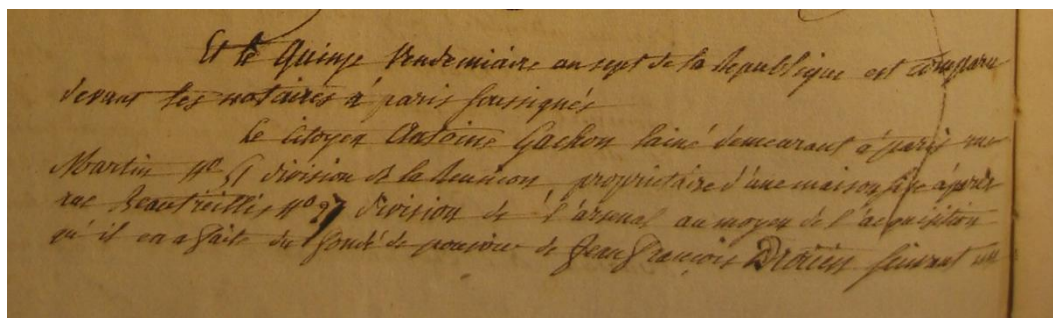 Et le Quinze Vendemiaire an sept de la Republique est comparu
devant les notaires a paris soussignés
Le Citoyen Antoine Gachon lainé demeurant a paris rue
Martin No division de la Reunion, proprietaire d'une maison sise a paris
rue Beautreillis No 27 division de l'arsenal au moyen de l'acquisition
qu'il en a faite du fondé de pouvoir de Jean françois suivant un